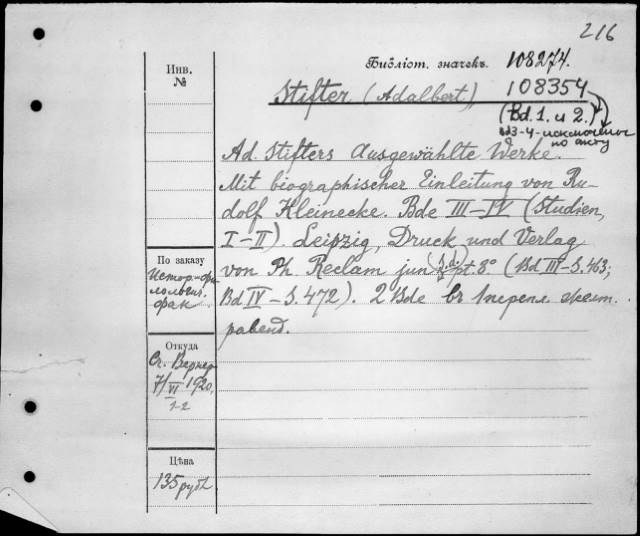 216
Инв.
№
Библіот. значекъ.
108274.
108354
Stifter (Adalbert)
(Bd. 1. и 2.)
по акту
Ad. Stifters Ausgewählte Werke.
Mit biographischer Einleitung von Ru-
dolf Kleinecke. Bde III–IV (Studien,
I–II). Leipzig, Druck und Verlag
von Ph. Reclam jun. (s.d.) pt. 8° (Bd III–S. 463;
Bd IV–S. 472). 2 Bde въ 1 перепл.
По заказу
Истор.-фи
лологич.
фак.
Откуда
От. Вернер
7/VI 1920,
1-2
Цѣна
135 рубл.